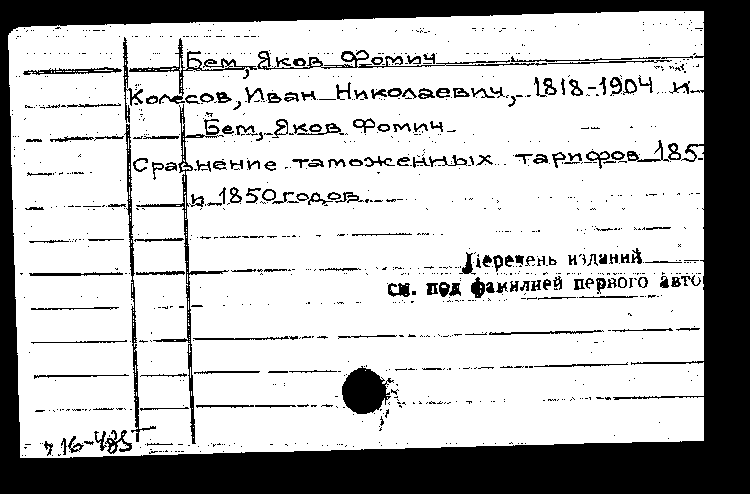 Бем, Яков Фомич
Колесов, Иван Николаевич, 1818-1904 и
Бем, Яков Фомич
Сравнение таможенных тарифов 185
и 1850 годов.
Перечень изданий
см. под фамилией первого авто
16-485